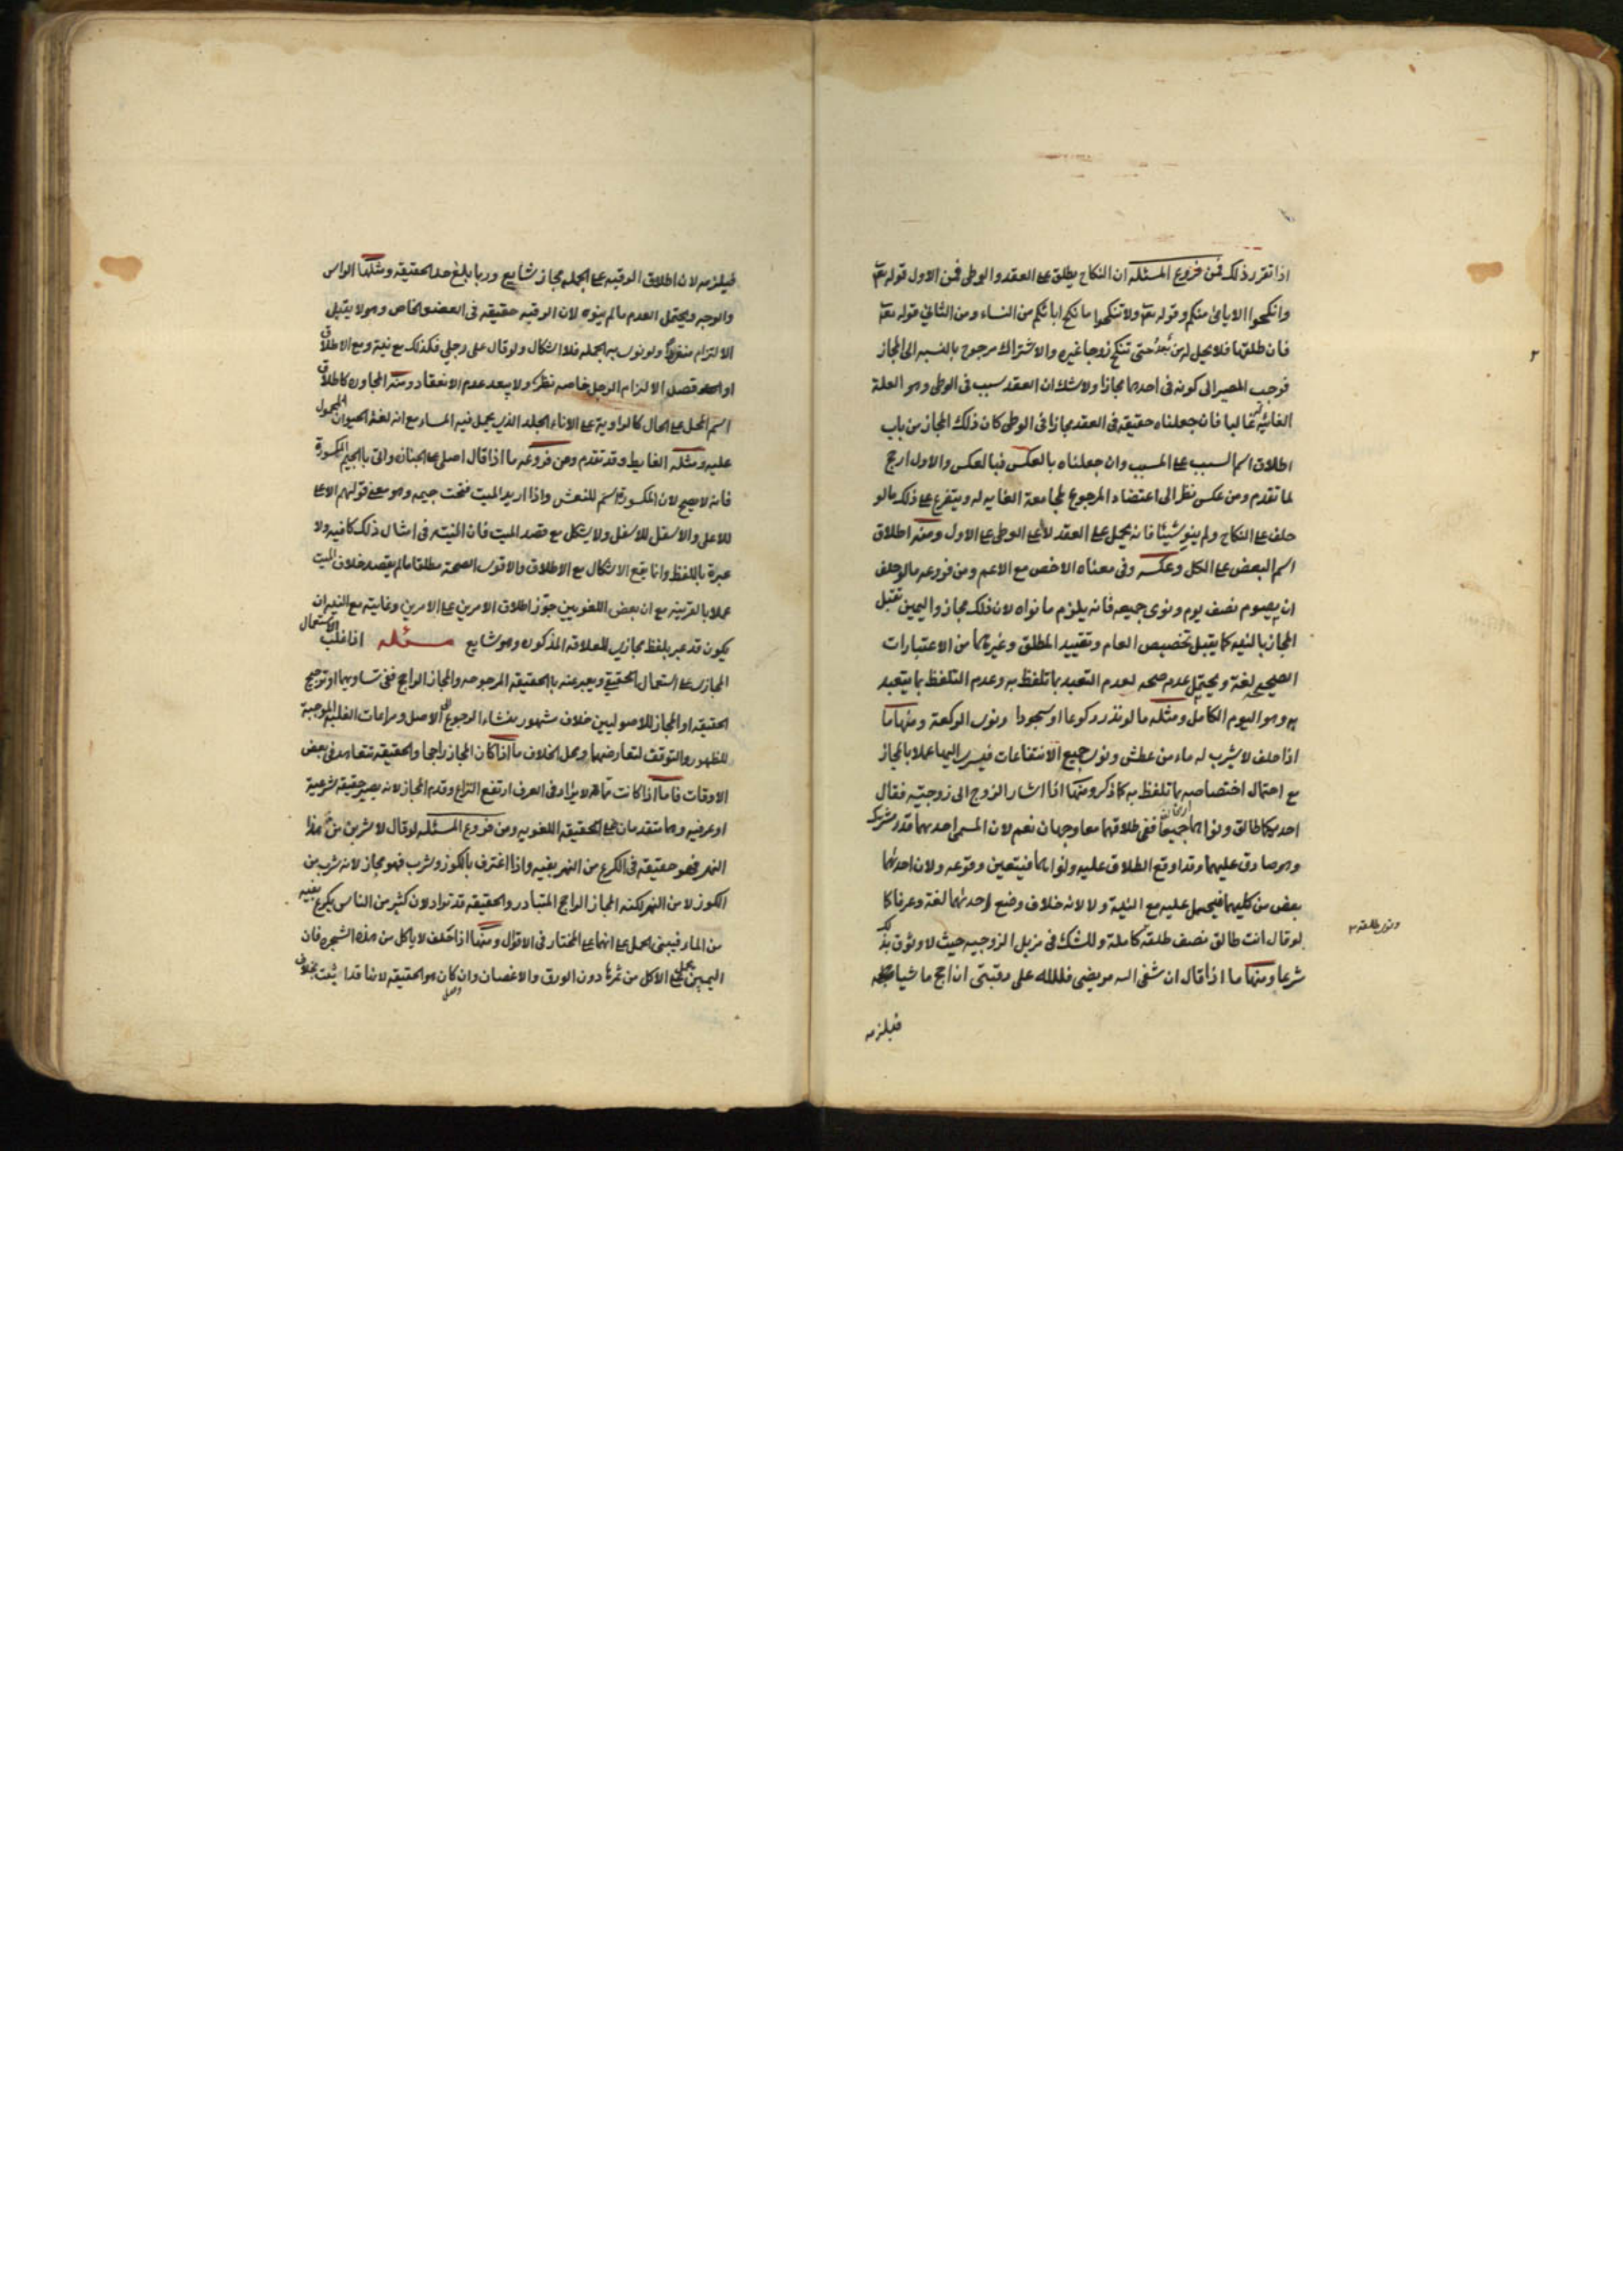 اذا تقرر ذلك فمن فروع المسئله ان النكاح يطلق على العقد والوطى فمن الاول قوله تعا
وانكحوا الايامى منكم وقوله تعا ولا تنكحوا ما نكح اباٶكم من النساء ومن الثانى قوله تعا
فان طلقها فلا تحل له من بعد حتى تنكح زوجا غيره والاشتراك مرجوح بالنسبه الى المجاز
فوجب المصير الى كونه فى احدهما مجازا ولا شك ان العقد سبب فى الوطى وهو العلة
الغائيه غالبا فان جعلناه حقيقه فى العقد مجازا فى الوطى كان ذلك المجاز من باب
اطلاق اسم السبب على المسبب وان جعلناه بالعكس فبالعكس والاول ارجح
لما تقدم ومن عكس نظر الى اعتضاد المرجوح بمجامعة الغايه له ويتفرع على ذلك ما لو
حلف على النكاح ولم ينو شيئا فانه يحمل على العقد لا على الوطى على الاول ومنه اطلاق
اسم البعض على الكل وعكسه وفى معناه الاخص مع الاعم ومن فروعه ما لو حلف
ان يصوم نصف يوم ونوى جميعه فانه يلزم ما نواه لان ذلك مجاز واليمين تقبل
المجاز بالنيه كما يقبل تخصيص العام وتقييد المطلق وغيرهما من الاعتبارات
الصحيحه لغة ويحتمل عدم صحه لعدم التعبد بما تلفظ به وعدم التلفظ بما يتعبد
به وهو اليوم الكامل ومثله ما لو نذر ركوعا او سجودا ونوى الركعة ومنها ما
اذا حلف لا يشرب له ماء من عطش ونوى جميع الانتفاعات فيسرى اليها عملا بالمجاز
مع احتمال اختصاصه بما تلفظ به كما ذكر ومنها اذا اشار الزوج الى زوجتيه فقال
احدكما طالق ونواهما جميعا ففى طلاقهما معا وجهان نعم لان المسمى احديهما قدر مشترك
وهو صادق عليهما وقد اوقع الطلاق عليه ونواهما فيتعين وقوعه ولان احدهما
بعض من كليهما فيحمل عليه مع النية ولا لانه خلاف وضع احدهما لغة وعرفا كما
لو قال انت طالق نصف طلقة كاملة وللشك فى مزيل الزوجيه حيث لا وثوق بذلك
ونوى طلقه
شرعا ومنها ما اذا قال ان شفى الله مريضى فلله على رقبتى ان احج ماشيا
فيلزمه
فيلزمه لان اطلاق الرقبه على الجمله مجاز شايع وربما بلغ حد الحقيقه ومثلها الراس
والوجه ويحتمل العدم ما لم ينوه لان الرقبه حقيقه فى العضو الخاص وهو لا يقبل
الالتزام منفردا ولو نوى بها الجمله فلا اشكال ولو قال على رجلى فكذلك مع نية ومع الاطلاق
او قصد الالتزام الرجل خاصه نظر ولا يبعد عدم الانعقاد ومنه المجاوره كاطلاق
اسم المحل على الحال كالراوية على الاناء الجلد الذى يحمل فيه الماء مع انه لغة الحيوان المحمول
عليه ومثله الغايط وقد تقدم ومن فروعه ما اذا قال اصلى على الجنازه واتى بالجيم المكسورة
فانه لا يصح لان المكسورة اسم للنعش واذا اريد الميت فتحت جيمه وهو معنى قولهم الاعلى
للاعلى والاسفل للاسفل ولا يشكل مع قصد الميت فان النيته فى امثال ذلك كافيه ولا
عبرة باللفظ وانما يقع الاشكال مع الاطلاق والاقوى الصحة مطلقا ما لم يقصد خلاف الميت
عملا بالقرينه مع ان بعض اللغويين جوز اطلاق الامرين على الامرين وغايته مع النيه ان
يكون قد عبر بلفظ مجازى للعلاقه المذكوره وهو شايع مسئله اذا غلب الاستعمال
المجازى على استعمال الحقيقى ويعبر عنه بالحقيقه المرجوحه والمجاز الراجح ففى تساويهما او ترجيح
الحقيقه او المجاز للاصوليين خلاف مشهور منشاء الرجوع الى الاصل ومراعات الغلبه الموجبة
للظهور والتوقف لتعارضهما ومحل الخلاف ما اذا كان المجاز راجحا والحقيقه تتعاهد فى بعض
الاوقات فاما اذا كانت مماته لا يراد فى العرف ارتفع النزاع وقدم المجاز لانه يصير حقيقه شرعية
او عرفيه وهما متقدمان على الحقيقه اللغويه ومن فروع المسئله لو قال لاشربن من هذا
النهر فهو حقيقه فى الكرع من النهر بفيه واذا اغترف بالكوز وشرب فهو مجاز لانه شرب من
الكوز لا من النهر لكنه المجاز الراجح المتبادر والحقيقه قد تراد لان كثير من الناس يكرع بفيه
من الماء فيبنى الحمل على انهما على المختار فى الاقوال ومنها اذا حلف لا ياكل من هذه الشجره فان
اليمين يحمل على الاكل من ثمرها دون الورق والاغصان وان كان هو الحقيقه لانها قد اميتت بخلاف